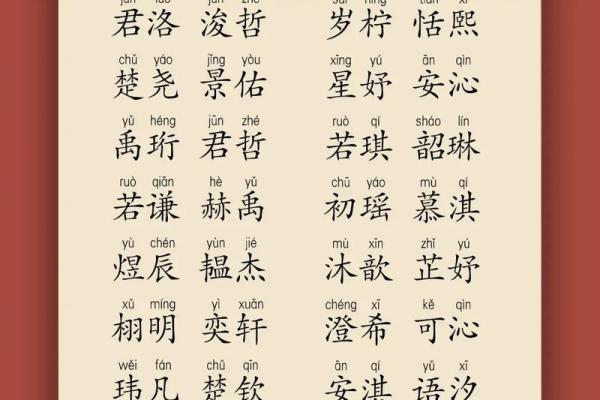 jūn luò jùn zhé suì níng tián xī
君洛 浚哲 岁柠 恬熙
chǔ yáo jǐng yòu xīng yú ān qìn
楚尧 景佑 星妤 安沁
yǔ héng jūn zhé ruò qí sháo lín
禹珩 君哲 若琪 韶琳
ruò qiān hè yǔ chū yáo mù qí
若谦 赫禹 初瑶 慕淇
yù chén yùn jié mù xīn zhǐ yú
煜辰 韫杰 沐歆 芷妤
xǔ míng yì xuān chéng xī kě qìn
栩明 奕轩 澄希 可沁
wěi fán chǔ qīn ān qí yǔ xī
玮凡 楚钦 安淇 语汐